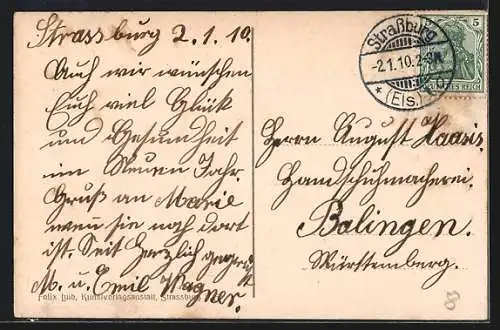 Strassburg 2.1.10.
Auch wir wünschen
Euch viel Glück
und Gesundheit
im Neuen Jahr.
Gruß an Marie
wenn sie noch dort
ist. Seit herzlich gegrüßt
M. u. Emil Wagner.
Felix Luib, Kunstverlagsanstalt, Strassburg
Straßburg
-2.1.10.2-3N.
* (Els.)
5
DEUTSCHES REICH
Herrn August Haasis,
Handschuhmacherei.
Balingen.
Württemberg.